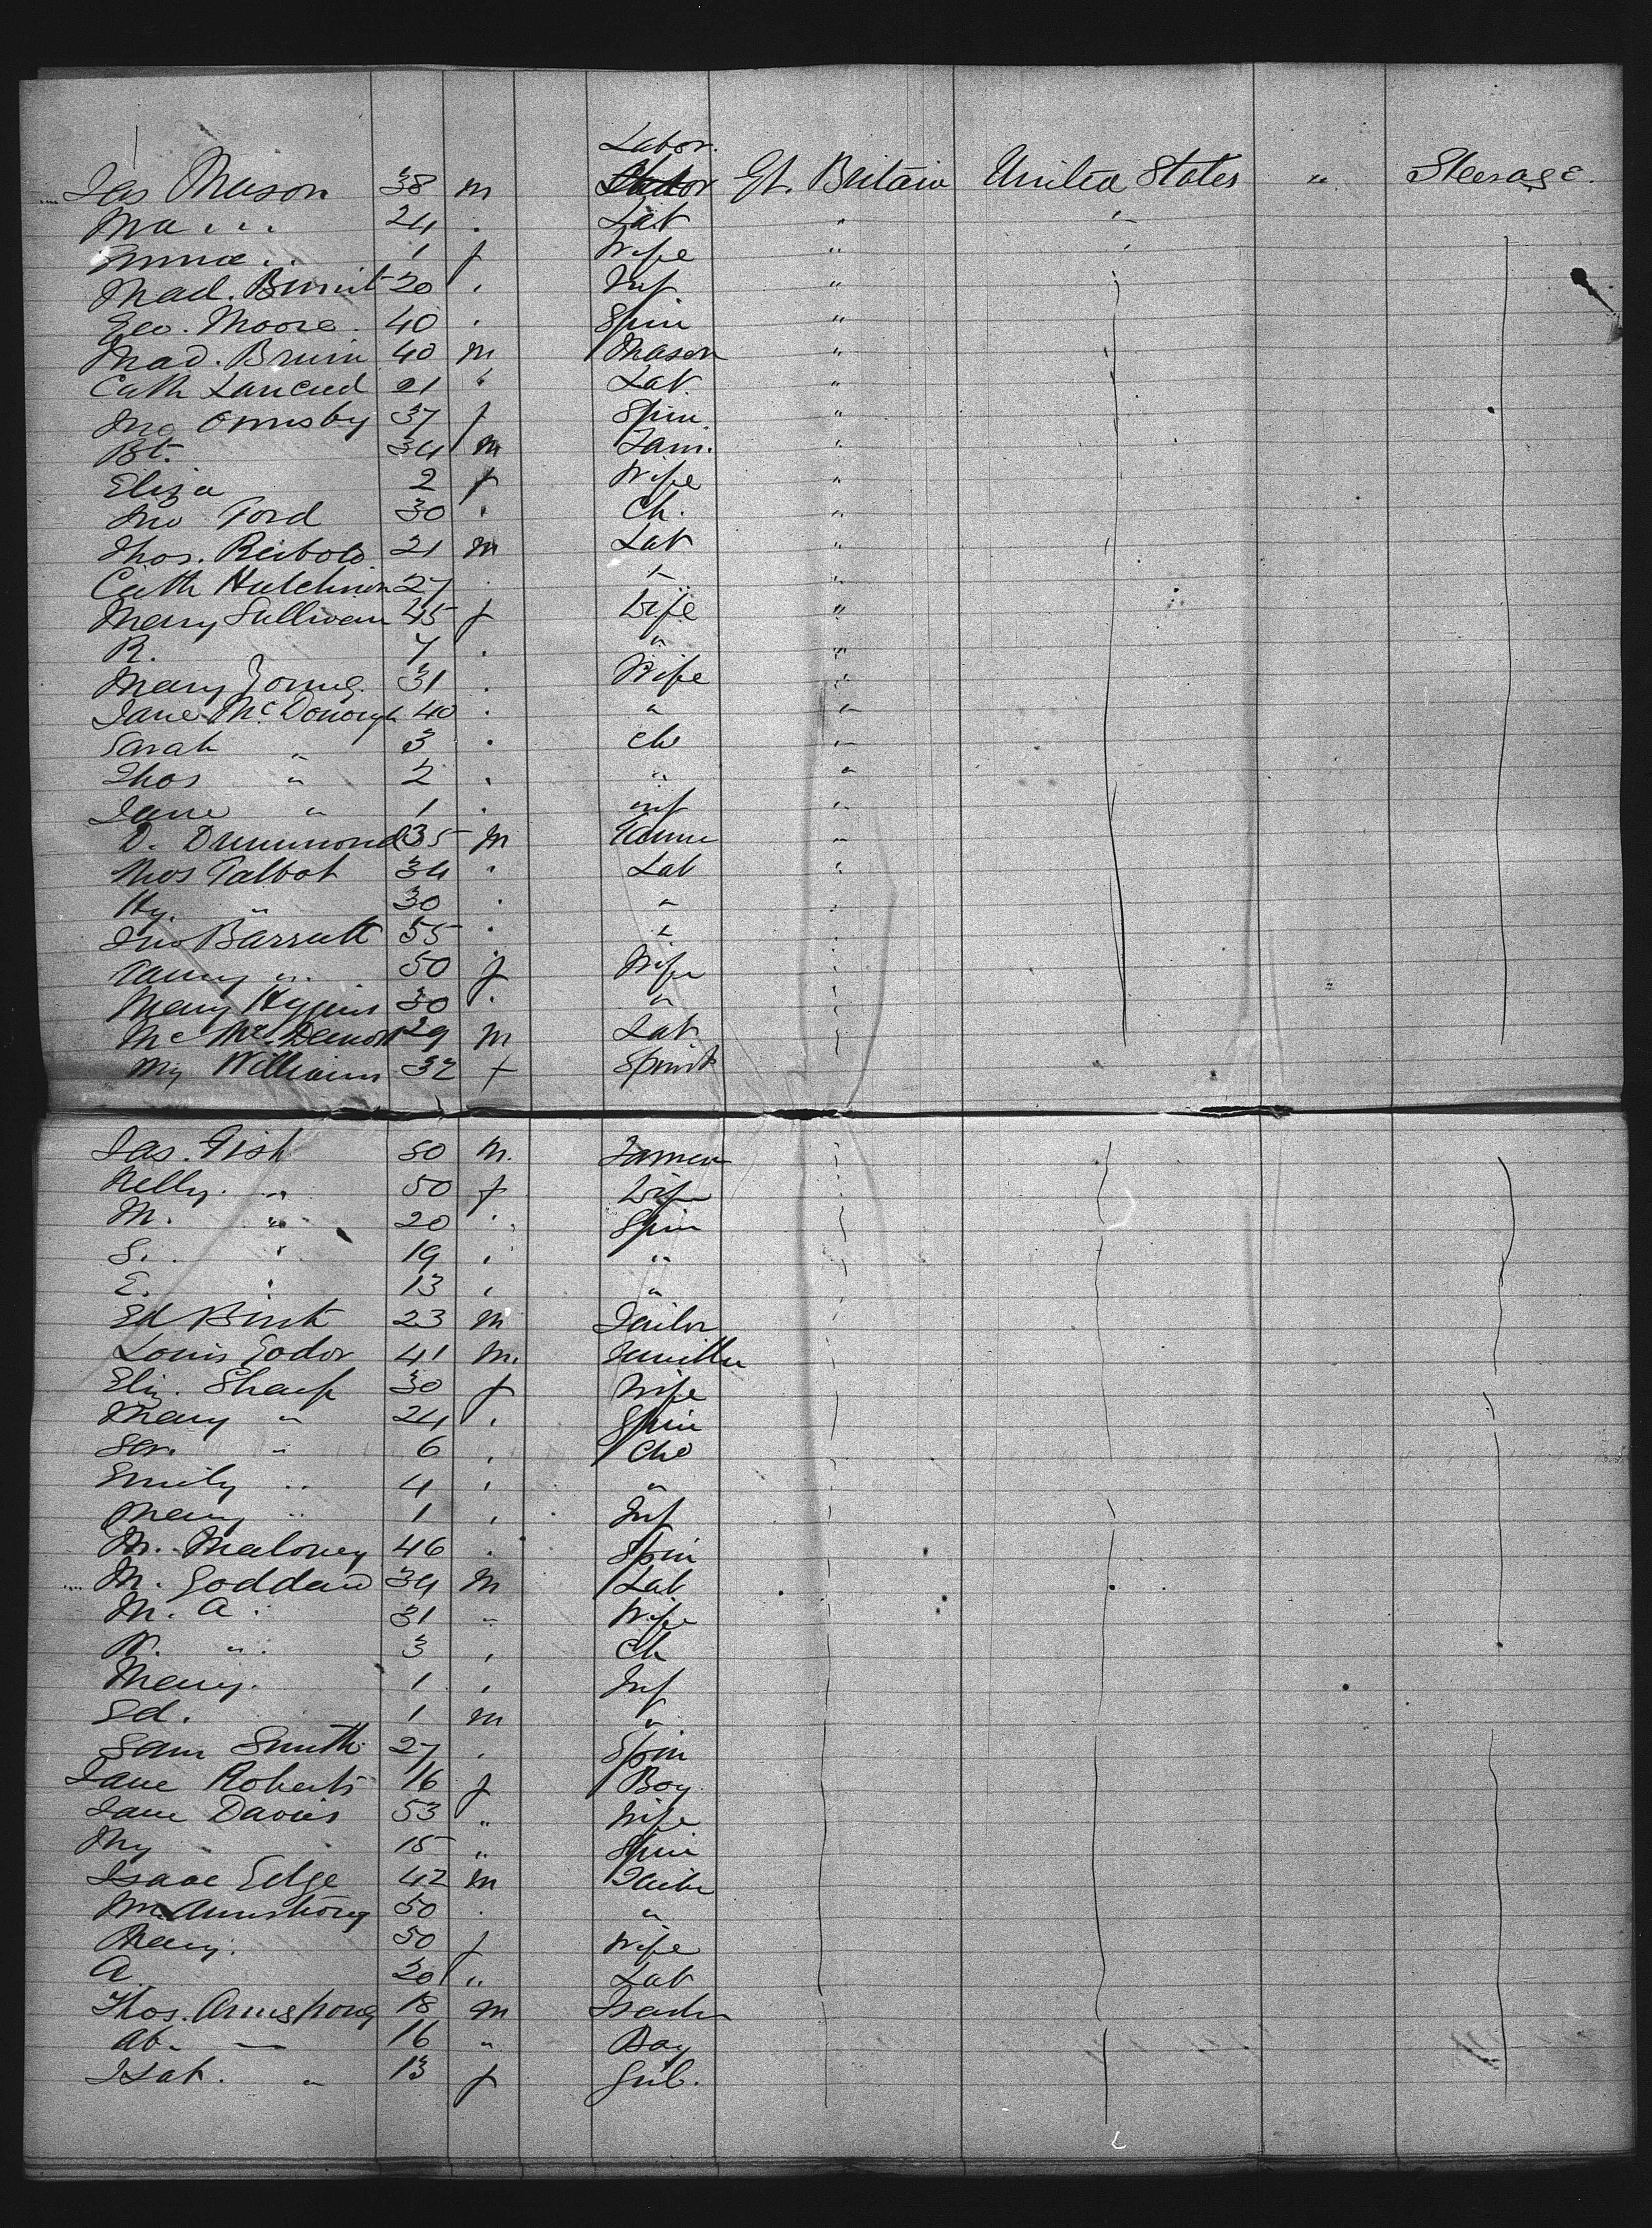 Labor.
Jas Mason 38 m Gt. Britain United States " Steerage.
Ma " 24 . Lab " "
Emma " 1 f Wife " "
Mad. 20 . Inf "
Geo. Moore. 40 . Spin "
Mad. Bruin 40 m Mason "
Cath 21 " Lab "
Jno Ormsby 37 f Spin "
Bt. 34 m Farm. "
Eliza 2 f Wife "
Jno Ford 30 . Ch. "
Thos. Reibold 21 m Lab "
Cath Hutchinson 27 . " "
Mary Sullivan 45 f Wife "
R. 7 . " "
Mary Young. 31 . Wife "
Jane McDonough 40 . " "
Sarah " 3 . Ch "
Thos " 2 . " "
Jane " 1 . inf "
D. Drummond 35 m Farmr "
Thos Talbot 34 " Lab "
Hy. " 30 . "
Jno Barratt 55 . "
Fanny " 50 f Wife
Mary Higgins 30 . "
Mc 29 m Lab
My Williams 32 f Spinst
Jas. Fish 50 m. Farmer
Nelly. " 50 f Wife
M. " 20 " Spin
S. " 19 " "
E. " 13 " "
Ed Birch 23 m Tailor
Louis Godor 41 m.
Eliz. Sharp 30 f Wife
Mary " 24 " Spin
Sar. " 6 " Chd
Emily " 4 " "
Mary " 1 " Inf
M. Maloney 46 . Spin
M. Goddard 34 m Lab
M. A. 31 " Wife
W. " 3 " Ch
Mary. 1 " Inf
Ed. 1 m "
Sam Smith 27 . Spin
Jane Roberts 16 f Boy
Jane Davies 53 " Wife
My 15 " Spin
Isaac Edge 42 m Tailor
Wm Armstrong 50 . "
Mary. 50 f Wife
A. 20 " Lab
Thos. Armstrong 18 m
Ab. — 16 " Boy
Isab. " 13 f Girl.